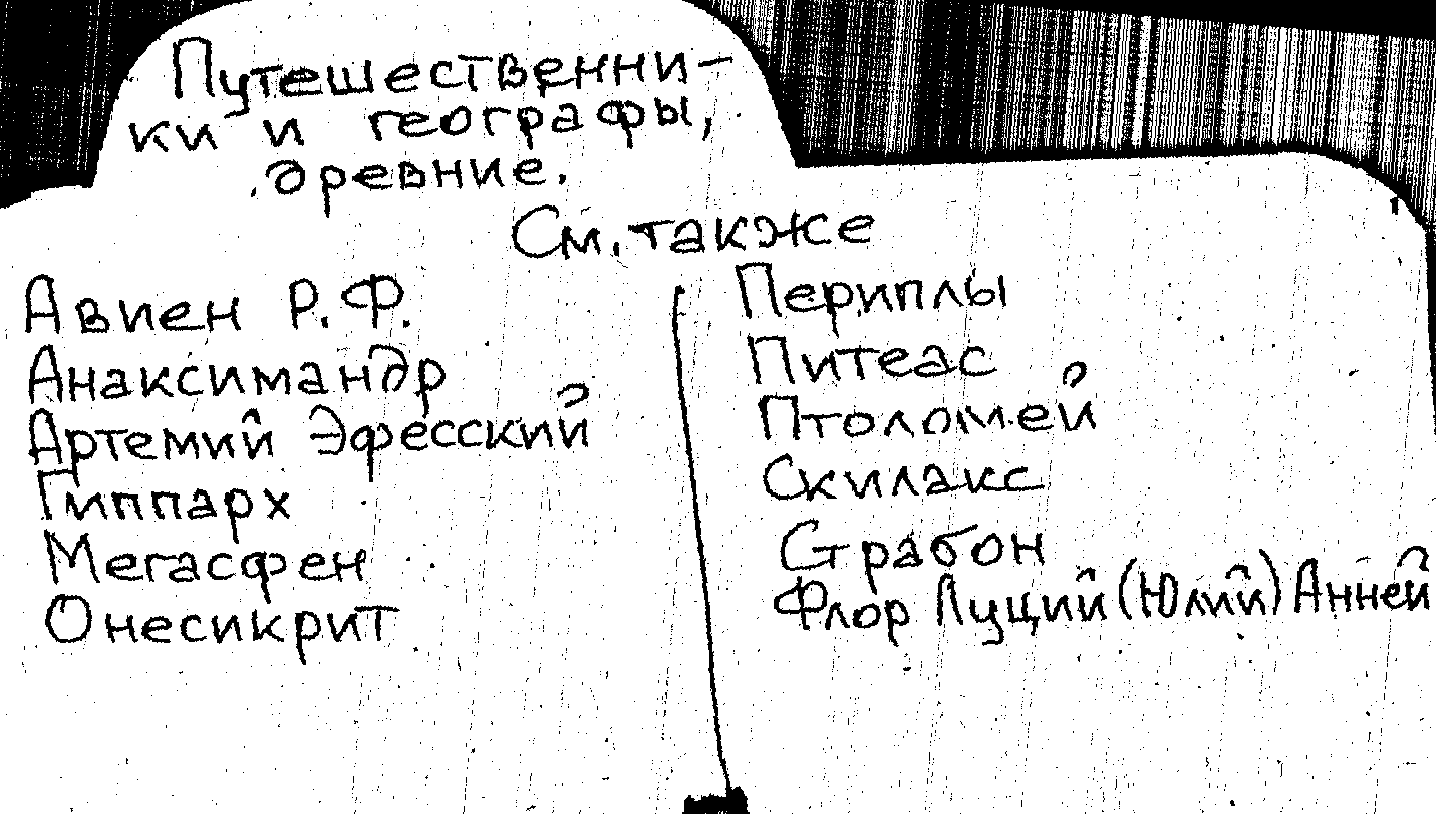 Путешественни-
ки и географы,
древние.
См. также
Авиен Р.Ф.
Анаксимандр
Артемий Эфесский
Гиппарх
Мегасфен
Онесикрит
Периплы
Питеас
Птоломей
Скилакс
Страбон
Флор Луций (Юлий) Анней